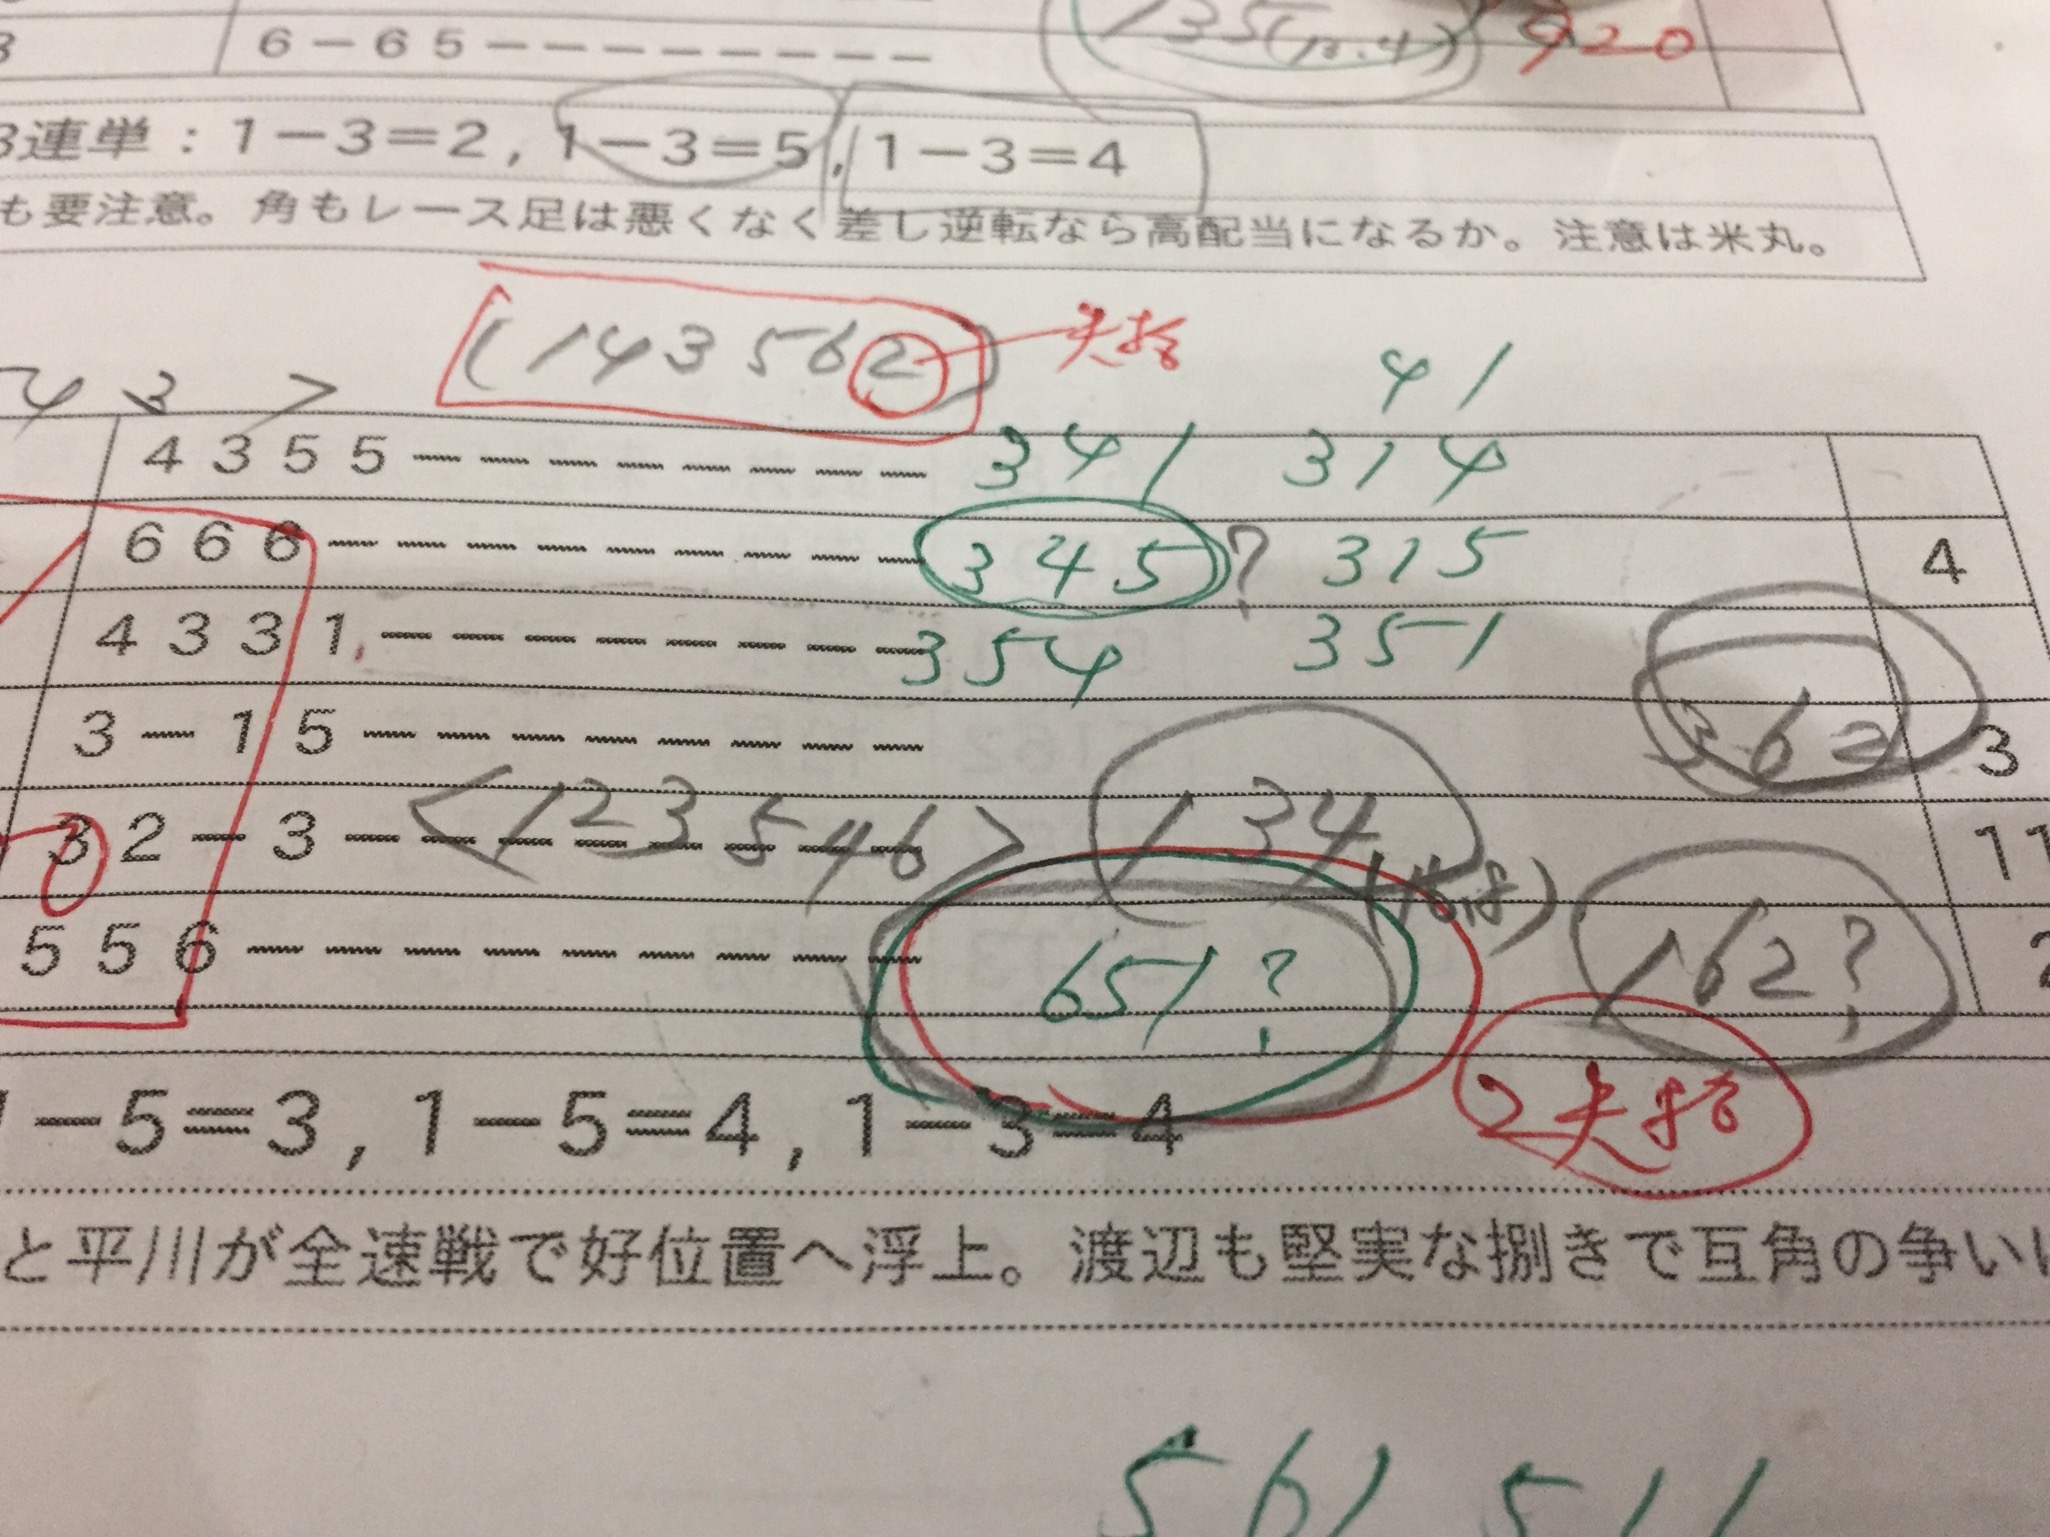 6－65－－－－－－－
135(12.4) 920
3連単：1－3＝2，1－3＝5，1－3＝4
も要注意。角もレース足は悪くなく差し逆転なら高配当になるか。注意は米丸。
(143562)
4 3 >
41
4355－－－－－－－－ 341 314
666－－－－－－－－－ 345? 315 4
4331－－－－－－－－ 354 351
3－15－－－－－－－－ 362 3
32－3－－－－－－－－ <123546> 134 11
556－－－－－－－－－ 651? 162? 2
1－5＝3，1－5＝4，1－3＝4
と平川が全速戦で好位置へ浮上。渡辺も堅実な捌きで互角の争い
561 511